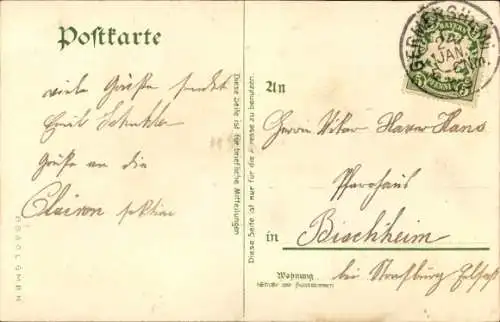 Postkarte
viele Grüße sendet
Emil
Grüße an die
Clairon
An
Herrn Vikar Xaver Hans
Pfarrhaus
in Bischheim
bei Straßburg Elsaß
Wohnung
(Straße und Hausnummer)
Diese Seite ist für briefliche Mitteilungen
Diese Seite ist nur für die Adresse zu benutzen.
GERMERSHEIM
24
JAN
BAYERN
5 PFENNIG 5